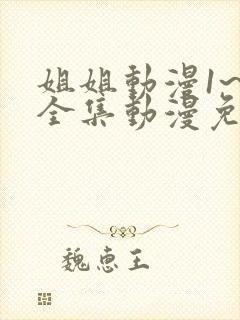 姐姐動漫1~
全集動漫免
魏惠王